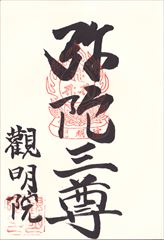 弥陀三尊
觀明院